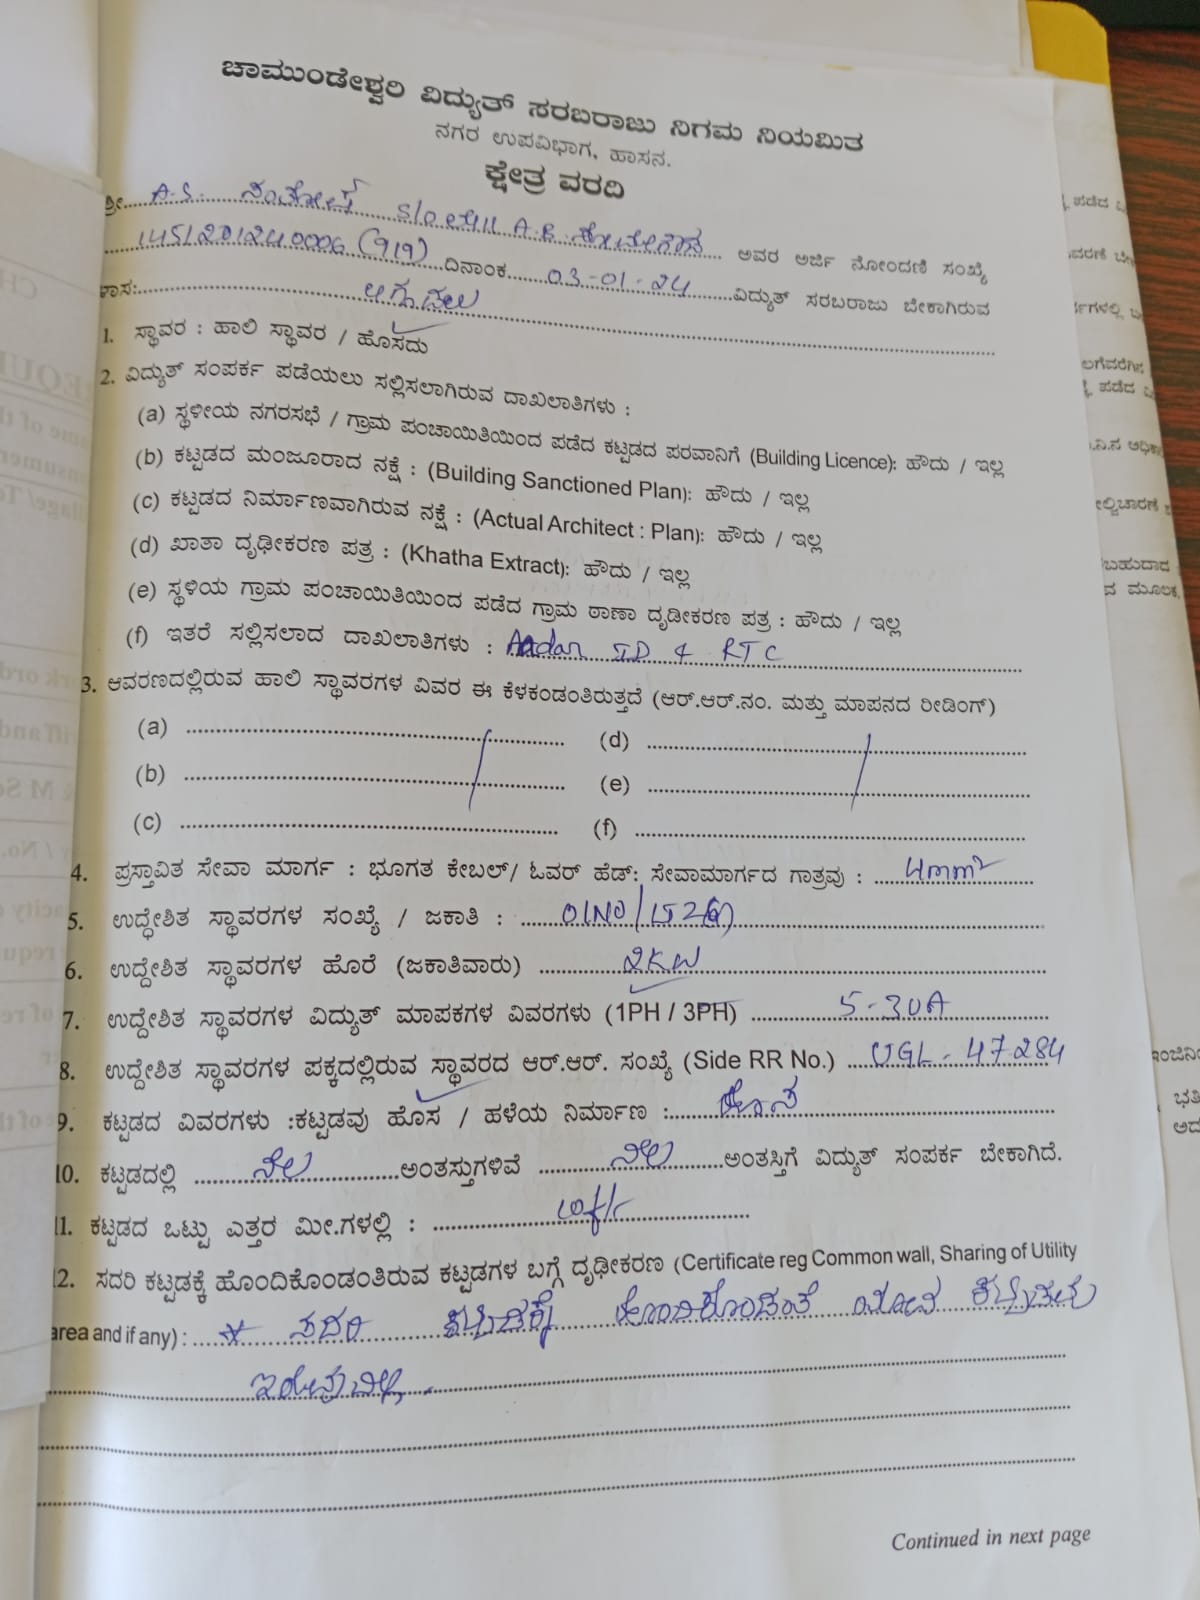 ಚಾಮುಂಡೇಶ್ವರಿ ವಿದ್ಯುತ್ ಸರಬರಾಜು ನಿಗಮ ನಿಯಮಿತ
ನಗರ ಉಪವಿಭಾಗ, ಹಾಸನ.
ಕ್ಷೇತ್ರ ವರದಿ
ಶ್ರೀ A.S. ಸಂತೋಷ S/o A.B.
145120124 0006 (919) ದಿನಾಂಕ 03-01-24 ಅವರ ಅರ್ಜಿ ನೋಂದಣಿ ಸಂಖ್ಯೆ
ವಿದ್ಯುತ್ ಸರಬರಾಜು ಬೇಕಾಗಿರುವ
1. ಸ್ಥಾವರ : ಹಾಲಿ ಸ್ಥಾವರ / ಹೊಸದು
2. ವಿದ್ಯುತ್ ಸಂಪರ್ಕ ಪಡೆಯಲು ಸಲ್ಲಿಸಲಾಗಿರುವ ದಾಖಲಾತಿಗಳು :
(a) ಸ್ಥಳೀಯ ನಗರಸಭೆ / ಗ್ರಾಮ ಪಂಚಾಯಿತಿಯಿಂದ ಪಡೆದ ಕಟ್ಟಡದ ಪರವಾನಿಗೆ (Building Licence): ಹೌದು / ಇಲ್ಲ
(b) ಕಟ್ಟಡದ ಮಂಜೂರಾದ ನಕ್ಷೆ : (Building Sanctioned Plan): ಹೌದು / ಇಲ್ಲ
(c) ಕಟ್ಟಡದ ನಿರ್ಮಾಣವಾಗಿರುವ ನಕ್ಷೆ : (Actual Architect : Plan): ಹೌದು / ಇಲ್ಲ
(d) ಖಾತಾ ದೃಢೀಕರಣ ಪತ್ರ : (Khatha Extract): ಹೌದು / ಇಲ್ಲ
(e) ಸ್ಥಳಿಯ ಗ್ರಾಮ ಪಂಚಾಯಿತಿಯಿಂದ ಪಡೆದ ಗ್ರಾಮ ಠಾಣಾ ದೃಡೀಕರಣ ಪತ್ರ : ಹೌದು / ಇಲ್ಲ
(f) ಇತರೆ ಸಲ್ಲಿಸಲಾದ ದಾಖಲಾತಿಗಳು : Aadar ID & RTC
3. ಆವರಣದಲ್ಲಿರುವ ಹಾಲಿ ಸ್ಥಾವರಗಳ ವಿವರ ಈ ಕೆಳಕಂಡಂತಿರುತ್ತದೆ (ಆರ್.ಆರ್.ನಂ. ಮತ್ತು ಮಾಪನದ ರೀಡಿಂಗ್)
(a) (d)
(b) (e)
(c) (f)
4. ಪ್ರಸ್ತಾವಿತ ಸೇವಾ ಮಾರ್ಗ : ಭೂಗತ ಕೇಬಲ್/ ಓವರ್ ಹೆಡ್: ಸೇವಾಮಾರ್ಗದ ಗಾತ್ರವು : 4mm²
5. ಉದ್ಧೇಶಿತ ಸ್ಥಾವರಗಳ ಸಂಖ್ಯೆ / ಜಕಾತಿ : 01NO/
6. ಉದ್ದೇಶಿತ ಸ್ಥಾವರಗಳ ಹೊರೆ (ಜಕಾತಿವಾರು) 2KW
7. ಉದ್ದೇಶಿತ ಸ್ಥಾವರಗಳ ವಿದ್ಯುತ್ ಮಾಪಕಗಳ ವಿವರಗಳು (1PH / 3PH) 5-30A
8. ಉದ್ದೇಶಿತ ಸ್ಥಾವರಗಳ ಪಕ್ಕದಲ್ಲಿರುವ ಸ್ಥಾವರದ ಆರ್.ಆರ್. ಸಂಖ್ಯೆ (Side RR No.) UGL-47284
9. ಕಟ್ಟಡದ ವಿವರಗಳು :ಕಟ್ಟಡವು ಹೊಸ / ಹಳೆಯ ನಿರ್ಮಾಣ : ಹೊಸ
10. ಕಟ್ಟಡದಲ್ಲಿ ನೆಲ ಅಂತಸ್ತುಗಳಿವೆ ನೆಲ ಅಂತಸ್ತಿಗೆ ವಿದ್ಯುತ್ ಸಂಪರ್ಕ ಬೇಕಾಗಿದೆ.
11. ಕಟ್ಟಡದ ಒಟ್ಟು ಎತ್ತರ ಮೀ.ಗಳಲ್ಲಿ :
12. ಸದರಿ ಕಟ್ಟಡಕ್ಕೆ ಹೊಂದಿಕೊಂಡಂತಿರುವ ಕಟ್ಟಡಗಳ ಬಗ್ಗೆ ದೃಢೀಕರಣ (Certificate reg Common wall, Sharing of Utility
area and if any) : * ಸದರಿ ಕಟ್ಟಡಕ್ಕೆ ಹೊಂದಿಕೊಂಡಂತೆ ಯಾವ ಕಟ್ಟಡವು
ಇರುವುದಿಲ್ಲ.
Continued in next page